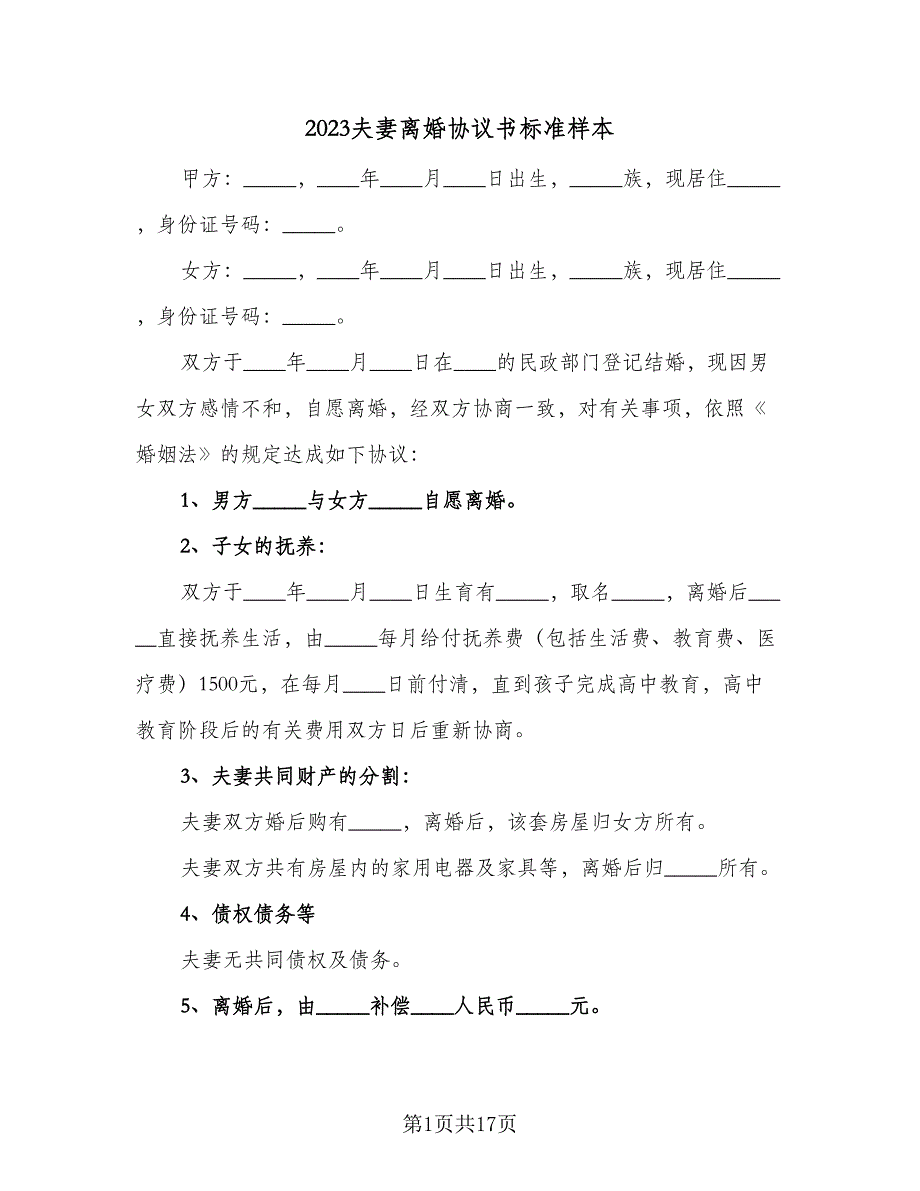 2023夫妻离婚协议书标准样本
甲方：_____，____年____月____日出生，_____族，现居住_____
，身份证号码：_____。
女方：_____，____年____月____日出生，_____族，现居住_____
，身份证号码：_____。
双方于____年____月____日在____的民政部门登记结婚，现因男
女双方感情不和，自愿离婚，经双方协商一致，对有关事项，依照《
婚姻法》的规定达成如下协议：
1、男方_____与女方_____自愿离婚。
2、子女的抚养：
双方于____年____月____日生育有_____，取名_____，离婚后___
__直接抚养生活，由_____每月给付抚养费（包括生活费、教育费、医
疗费）1500元，在每月____日前付清，直到孩子完成高中教育，高中
教育阶段后的有关费用双方日后重新协商。
3、夫妻共同财产的分割：
夫妻双方婚后购有_____，离婚后，该套房屋归女方所有。
夫妻双方共有房屋内的家用电器及家具等，离婚后归_____所有。
4、债权债务等
夫妻无共同债权及债务。
5、离婚后，由_____补偿____人民币_____元。
第1页共17页